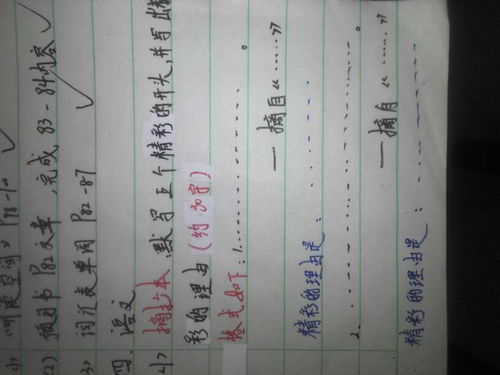 空间》P
(2) 预习书 P82 文章，完成 83-84内容
3) 词汇表单周 P82-87
四. 语文
1) 摘抄本 默写五个精彩的开头,并写出精
彩的理由(约30字)
格式如下:1.…………。
—摘自《……》
精彩的理由是:……
2.…………。
—摘自《……》
精彩的理由是:……